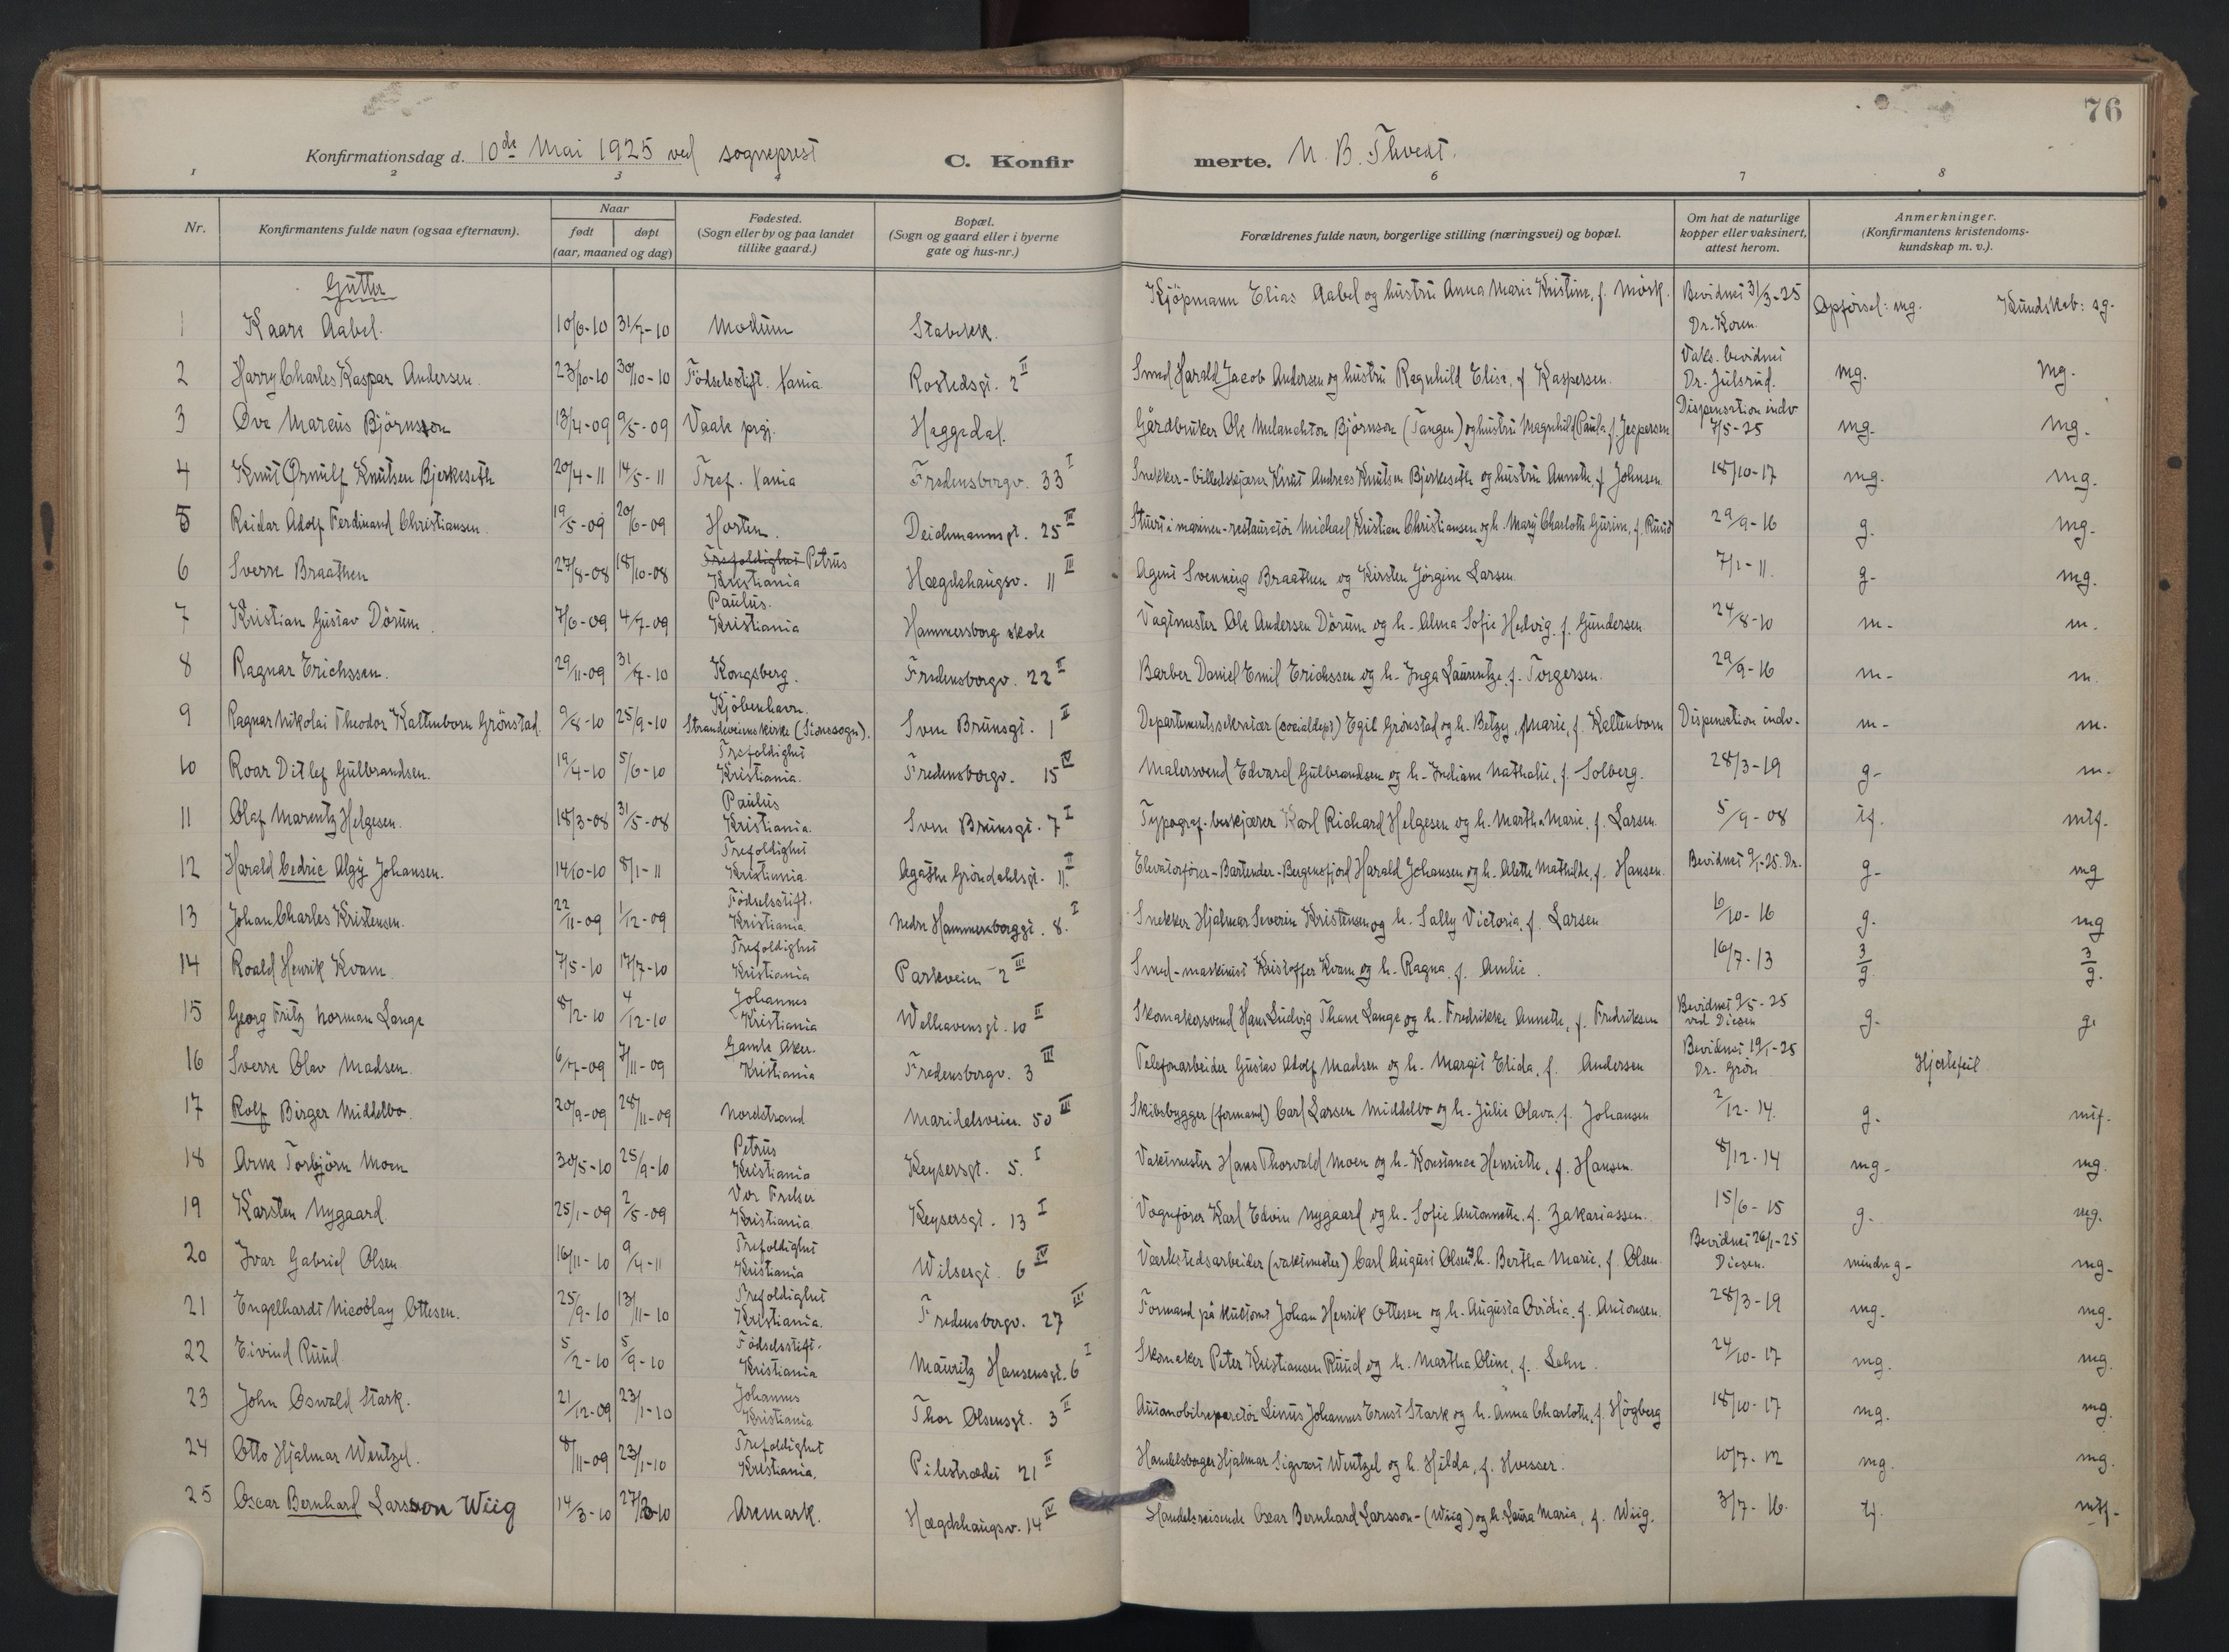 76
Konfirmationsdag d. 10de Mai 1925 ved sogneprest C. Konfirmerte. N. B. Thvedt.
1 2 3 4 6 7 8
Nr. Konfirmantens fulde navn (ogsaa efternavn). Naar født døpt (aar, maaned og dag) Fødested. (Sogn eller by og paa landet tillike gaard.) Bopæl. (Sogn og gaard eller i byerne gate og hus-nr.) Forældrenes fulde navn, borgerlige stilling (næringsvei) og bopæl. Om hat de naturlige kopper eller vaksinert, attest herom. Anmerkninger. (Konfirmantens kristendomskundskap m. v.).
Gutter
1 Kaare Aabel. 10/6-10 31/7-10 Modum Stabekk. Kjöpmann Elias Aabel og hustru Anna Marie Kristine, f. Mörk. Bevidnet 31/3-25 Dr. Koren. Opførsel: mg. Kundskab: sg.
2 Harry Charles Kaspar Andersen. 23/10-10 30/10-10 Födselsstift. Xania Rostedsgt. 2 II Smed Harald Jacob Andersen og hustru Ragnhild Elise, f. Kaspersen. Vaks. bevidnet Dr. Julsrud. mg. mg.
3 Ove Marcus Björnsson 13/4-09 9/5-09 Vaale prgj. Haggedal. Gårdbruker Ole Melanchton Björnson (Tangen) og hustru Magnhild Paula f. Jespersen Dispensation indv 7/5-25 mg. mg.
4 Knut Ørnulf Knutsen Bjerkeseth 20/4-11 14/5-11 Tref. Xania Fredensborgv. 33 I Snekker-billedskjærer Knut Andreas Knutsen Bjerkeseth og hustru Annette, f. Johnsen 18/10-17 mg. mg.
5 Reidar Adolf Ferdinand Christiansen. 19/5-09 20/6-09 Horten. Deichmannsgt. 25 III Stuert i marinen-restauratör Michael Kristian Christiansen og h. Mary Charlotte Gurine, f. Ruud 29/9-16 g. mg.
6 Sverre Braathen 27/8-08 18/10-08 Trefoldighet Petrus Kristiania Hægdehaugsv. 11 III Agent Svenning Braathen og Kirsten Jörgine Larsen 7/1-11. g- mg.
7 Kristian Gustav Dörum 7/6-09 4/7-09 Paulus. Kristiania Hammersborg skole Vagtmester Ole Andersen Dörum og h. Alma Sofie Hedvig, f. Gundersen. 24/8-10 m- m.
8 Ragnar Erichssen. 29/11-09 31/7-10 Kongsberg. Fredensborgv. 22 II Barber Daniel Emil Erichssen og h. Inga Laurentze, f. Torgersen. 29/9-16 m- m.
9 Ragnar Nikolai Theodor Kaltenborn Grönstad. 9/8-10 25/9-10 Kjöbenhavn. Strandveienskirke (Sionssogn). Sven Brunsgt. 1 II Departementssekretær (socialdept) Egil Grönstad og h. Betzy Marie, f. Kaltenborn Dispensation indv. m- m.
10 Roar Ditlef Gulbrandsen. 19/4-10 5/6-10 Trefoldighet Kristiania. Fredensborgv. 15 IV Malersvend Edvard Gulbrandsen og h. Indiane Nathalie, f. Solberg. 28/3-19 g- m.
11 Olaf Marentz Helgesen. 18/3-08 31/5-08 Paulus Kristiania. Sven Brunsgt. 7 I Typograf-beskjærer Karl Richard Helgesen og h. Martha Marie, f. Larsen. 5/9-08 tf. mtf.
12 Harald Cedric Algy Johansen. 14/10-10 8/1-11 Trefoldighet Kristiania. Agathe Gröndahlsgt. 11 II Elevatorfører-Bartender-Bergensfjord Harald Johansen og h. Alette Mathilde, f. Hansen. Bevidnet 9/1-25. Dr. g- mg
13 Johan Charles Kristensen. 22/11-09 1/12-09 Födselsstift. Kristiania Nedre Hammersborggt. 8. I Snekker Hjalmar Severin Kristensen og h. Sally Victoria, f. Larsen 6/10-16 g. mg
14 Roald Henrik Kvam 7/5-10 17/7-10 Trefoldighet Kristiania Parkveien 2 III Smed-maskinist Kristoffer Kvam og h. Ragna, f. Amlie. 16/7-13 3/g. 3/g.
15 Georg Fritz Norman Lange 8/2-10 4/12-10 Johannes Kristiania Welhavensgt. 10 II Skomakersvend Hans Ludvig Thane Lange og h. Fredrikke Annette, f. Fredriksen Bevidnet 9/5-25 ved Diesen g. g.
16 Sverre Olav Madsen. 6/7-09 7/11-09 Gamle Aker. Kristiania Fredensborgv. 3 III Telefonarbeider Gustav Adolf Madsen og h. Margit Elida, f. Andersen Bevidnet 19/1-25 Dr. Grön Hjertefeil
17 Rolf Birger Middelbo. 20/9-09 28/11-09 Nordstrand Maridalsveien. 50 III Skibsbygger (formand) Carl Larsen Middelbo og h. Julie Olava, f. Johansen 2/12-14. g. mtf.
18 Arne Torbjörn Moen 30/5-10 25/9-10 Petrus Kristiania Keysersgt. 5. I Vaktmester Hans Thorvald Moen og h. Konstance Henriette, f. Hansen. 8/12-14 mg- mg.
19 Karsten Nygaard 25/1-09 2/5-09 Vor Frelser Kristiania Keysersgt. 13 I Vognfører Karl Edvin Nygaard og h. Sofie Antonette, f. Zakariassen. 15/6-15 g. mg.
20 Ivar Gabriel Olsen 16/11-10 9/4-11 Trefoldighet Kristiania Wilsesgt. 6 IV Værkstedsarbeider (vaktmester) Carl August Olsen og h. Bertha Marie, f. Olsen. Bevidnet 26/1-25 Diesen. mindre g- mg-
21 Engelhardt Nicolay Ottesen. 25/9-10 13/11-10 Trefoldighet Kristiania. Fredensborgv. 27 III Formand på kultomt Johan Henrik Ottesen og h. Augusta Ovidia, f. Antonsen. 28/3-19 mg. mg.
22 Eivind Ruud 5/2-10 5/9-10 Födselsstift. Kristiania Mauritz Hansensgt. 6 I Skomaker Peter Kristiansen Ruud og h. Martha Oline, f. Lehn. 24/10-17 mg. mg.
23 John Oswald Stark. 21/12-09 23/1-10 Johannes Kristiania Thor Olsensgt. 3 II Automobilreparatör Linus Johannes Ernst Stark og h. Anna Charlotte, f. Högberg 18/10-17 mg. mg.
24 Otto Hjalmar Wentzel. 8/11-09 23/1-10 Trefoldighet Kristiania. Pilestrædet 21 II Handelsborger Hjalmar Sigvart Wentzel og h. Hilda, f. Hvesser. 10/7-12 mg. mg.
25 Oscar Bernhard Larsson Wiig 14/3-10 27/3-10 Aremark. Hægdehaugsv. 14 IV Handelsreisende Oscar Bernhard Larsson-(Wiig) og h. Laura Maria, f. Wiig. 3/7-16. tf. mtf-